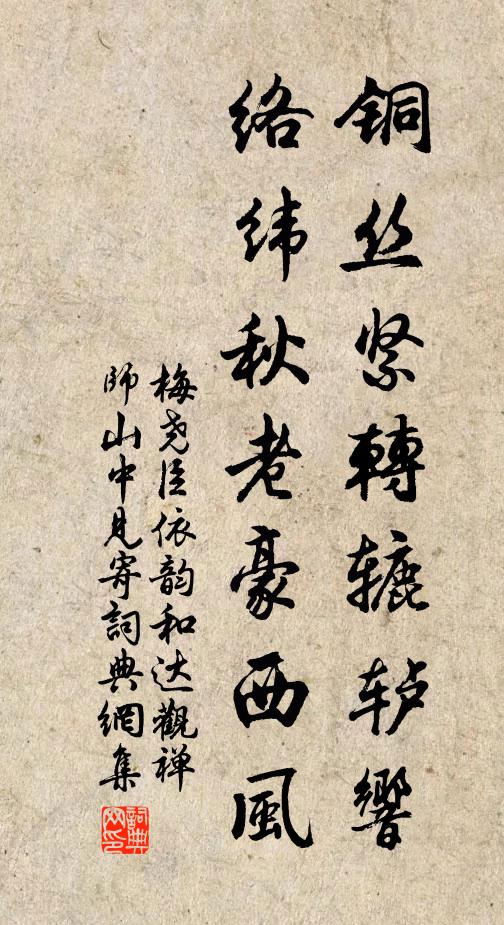 铜丝紧轉辘轳響
络纬秋老豪西風
梅尧臣依韵和达觀禅
師山中見寄詞典網集
詞典网印